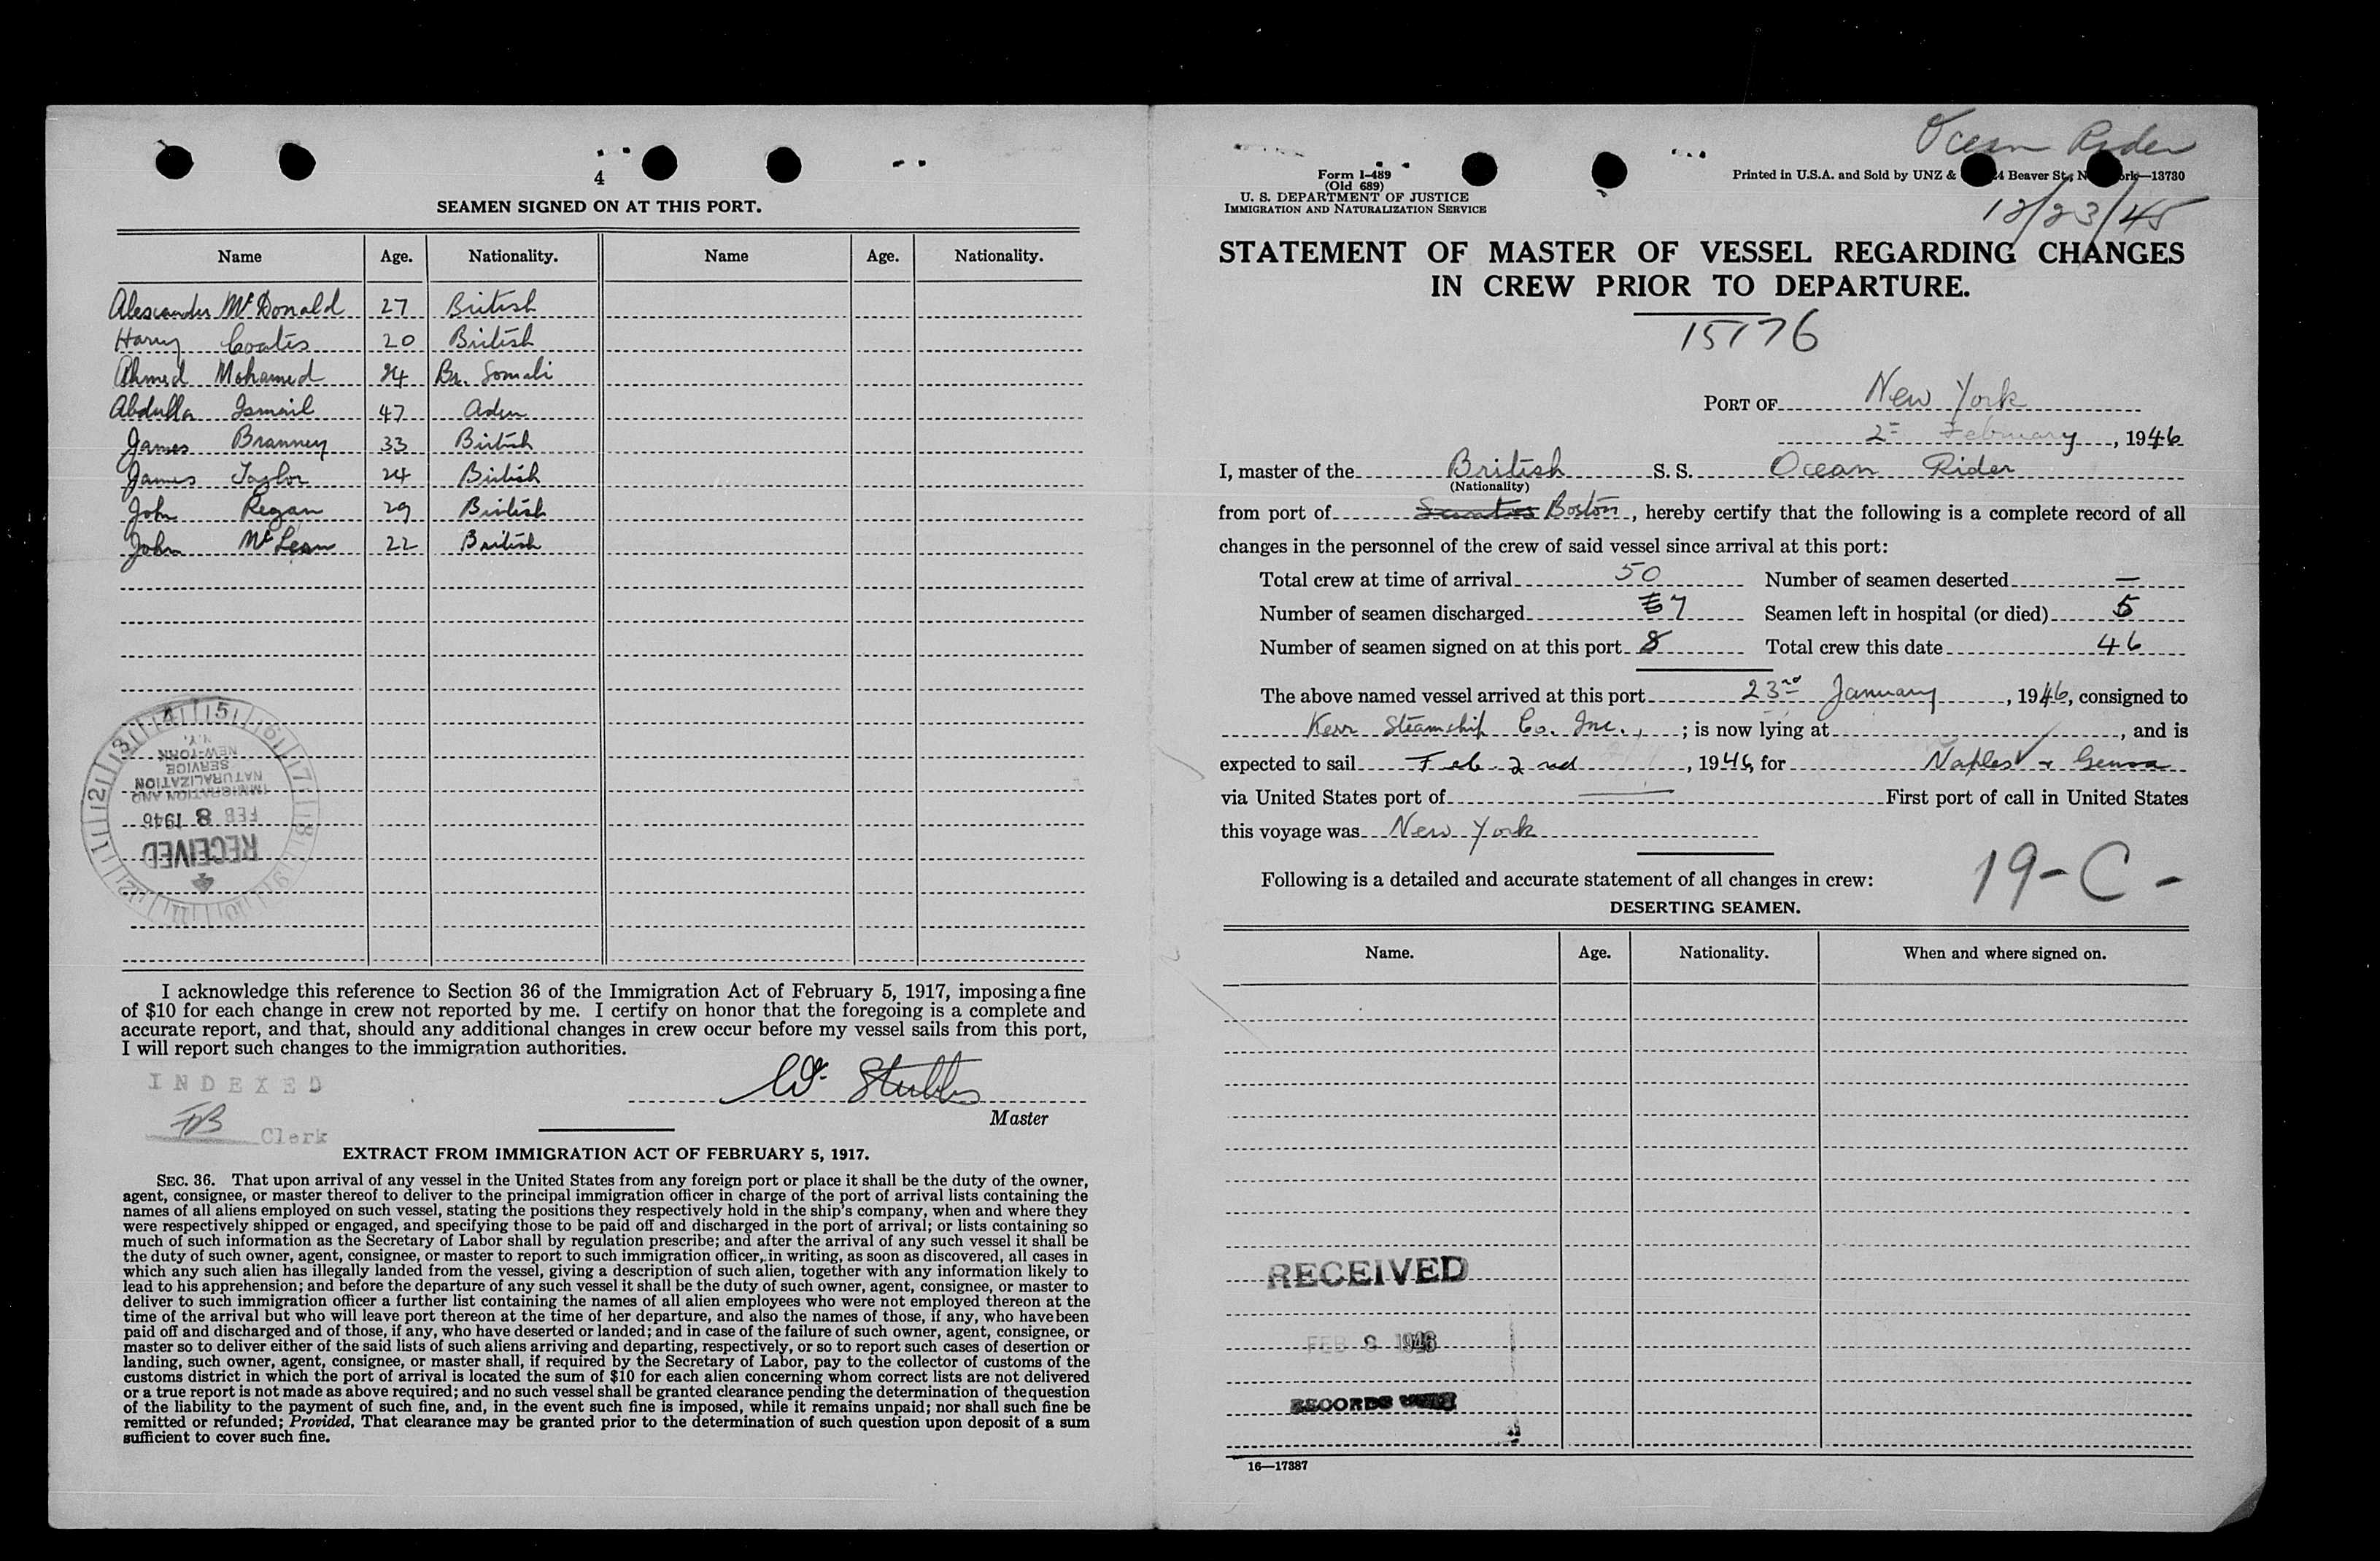 4
SEAMEN SIGNED ON AT THIS PORT.
Name Age. Nationality. Name Age. Nationality.
Alexander McDonald 27 British
Harry Coates 20 British
Ahmed Mohamed 24 Br. Somali
Abdulla Ismail 47 Aden
James Branney 33 British
James Taylor 24 British
John Regan 29 British
John McLean 22 British
RECEIVED
FEB 8 1946
IMMIGRATION AND
NATURALIZATION
SERVICE
NEW-YORK
N.Y.
I acknowledge this reference to Section 36 of the Immigration Act of February 5, 1917, imposing a fine
of $10 for each change in crew not reported by me. I certify on honor that the foregoing is a complete and
accurate report, and that, should any additional changes in crew occur before my vessel sails from this port,
I will report such changes to the immigration authorities.
INDEXED
Clerk
W. Stubbs
Master
EXTRACT FROM IMMIGRATION ACT OF FEBRUARY 5, 1917.
SEC. 36. That upon arrival of any vessel in the United States from any foreign port or place it shall be the duty of the owner,
agent, consignee, or master thereof to deliver to the principal immigration officer in charge of the port of arrival lists containing the
names of all aliens employed on such vessel, stating the positions they respectively hold in the ship's company, when and where they
were respectively shipped or engaged, and specifying those to be paid off and discharged in the port of arrival; or lists containing so
much of such information as the Secretary of Labor shall by regulation prescribe; and after the arrival of any such vessel it shall be
the duty of such owner, agent, consignee, or master to report to such immigration officer, in writing, as soon as discovered, all cases in
which any such alien has illegally landed from the vessel, giving a description of such alien, together with any information likely to
lead to his apprehension; and before the departure of any such vessel it shall be the duty of such owner, agent, consignee, or master to
deliver to such immigration officer a further list containing the names of all alien employees who were not employed thereon at the
time of the arrival but who will leave port thereon at the time of her departure, and also the names of those, if any, who have been
paid off and discharged and of those, if any, who have deserted or landed; and in case of the failure of such owner, agent, consignee, or
master so to deliver either of the said lists of such aliens arriving and departing, respectively, or so to report such cases of desertion or
landing, such owner, agent, consignee, or master shall, if required by the Secretary of Labor, pay to the collector of customs of the
customs district in which the port of arrival is located the sum of $10 for each alien concerning whom correct lists are not delivered
or a true report is not made as above required; and no such vessel shall be granted clearance pending the determination of the question
of the liability to the payment of such fine, and, in the event such fine is imposed, while it remains unpaid; nor shall such fine be
remitted or refunded; Provided, That clearance may be granted prior to the determination of such question upon deposit of a sum
sufficient to cover such fine.
Ocean Rider
Form I-489
(Old 689)
U. S. DEPARTMENT OF JUSTICE
IMMIGRATION AND NATURALIZATION SERVICE
Printed in U.S.A. and Sold by UNZ & 4 Beaver St., N ork—13730
12/23/45
STATEMENT OF MASTER OF VESSEL REGARDING CHANGES
IN CREW PRIOR TO DEPARTURE.
15176
PORT OF New York
2= February, 1946
I, master of the British S. S. Ocean Rider
(Nationality)
from port of Santos Boston, hereby certify that the following is a complete record of all
changes in the personnel of the crew of said vessel since arrival at this port:
Total crew at time of arrival 50 Number of seamen deserted —
Number of seamen discharged 7 Seamen left in hospital (or died) 5
Number of seamen signed on at this port 8 Total crew this date 46
The above named vessel arrived at this port 23rd January, 1946, consigned to
Kerr Steamship Co. Inc., ; is now lying at , and is
expected to sail Feb. 2nd, 1946, for Naples & Genoa
via United States port of — First port of call in United States
this voyage was New York
19-C-
Following is a detailed and accurate statement of all changes in crew:
DESERTING SEAMEN.
Name. Age. Nationality. When and where signed on.
RECEIVED
FEB 8 1946
RECORDS
16—17387